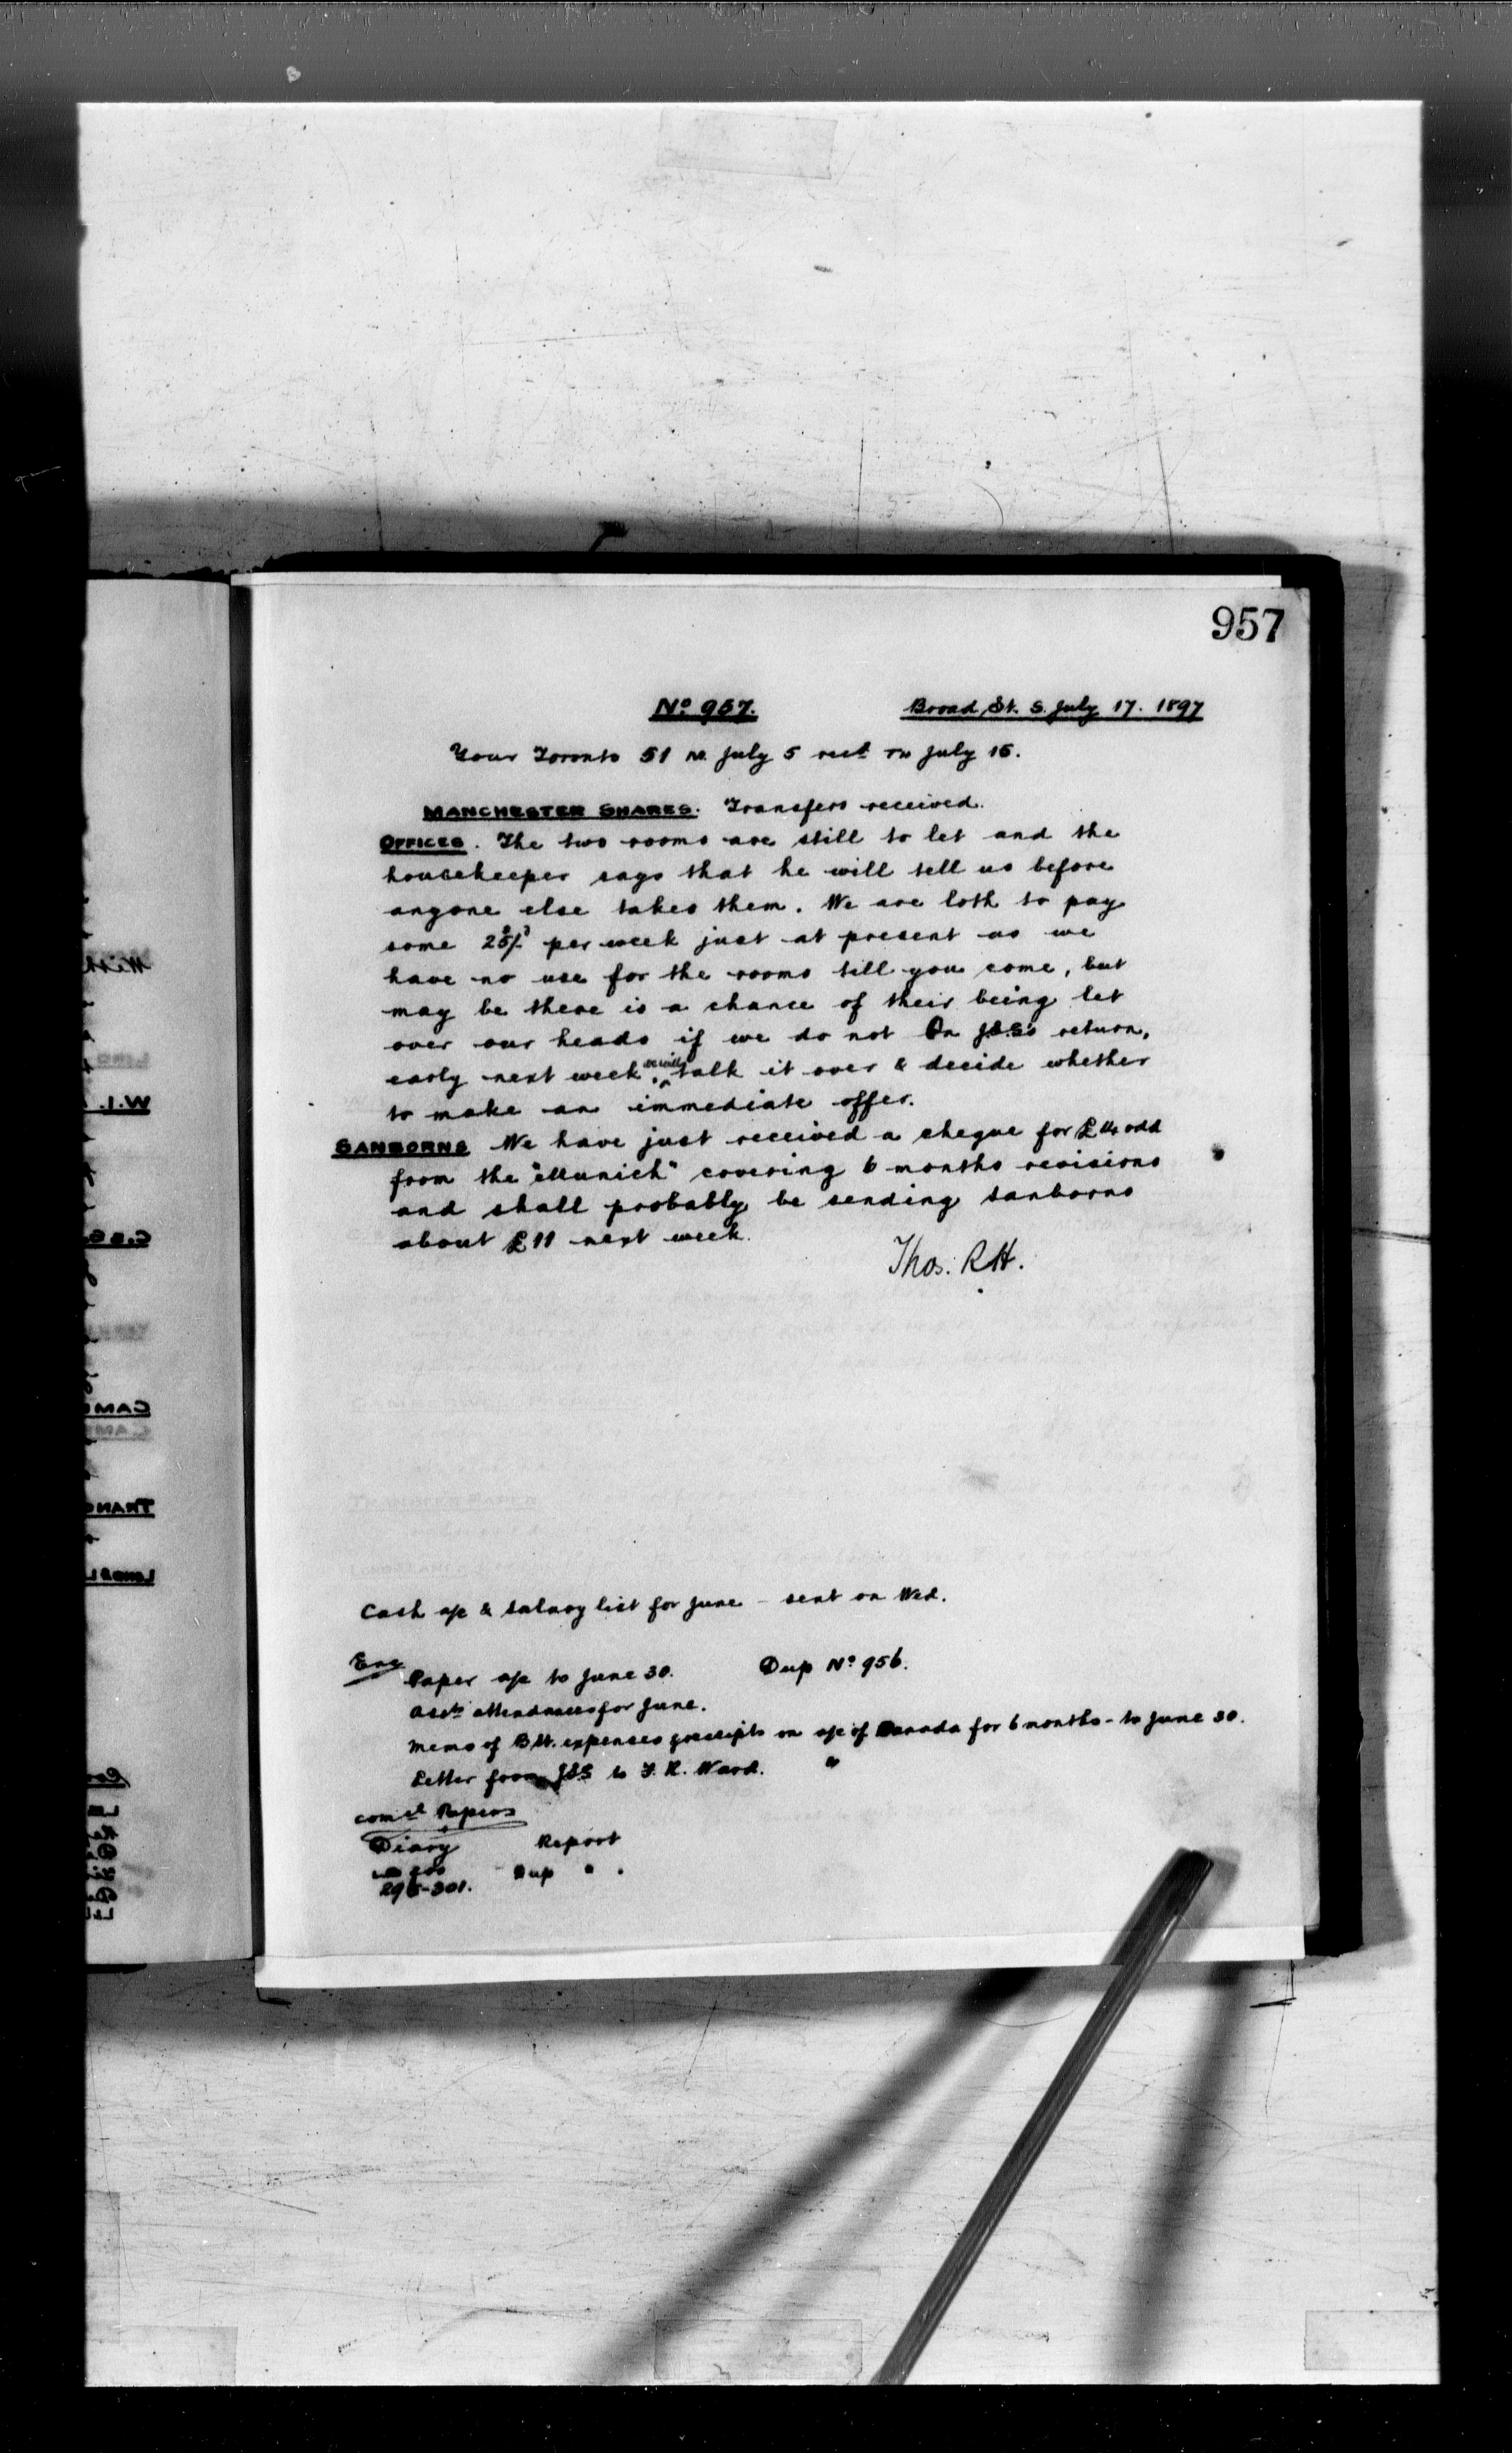 957
No 957. Broad St. S. July 17. 1897
Your Toronto 51 of July 5 recd on July 15.
MANCHESTER SHARES. Transfers received.
OFFICES. The two rooms are still to let and the
housekeeper says that he will tell us before
anyone else takes them. We are loth to pay
some 25/- per week just at present as we
have no use for the rooms till you come, but
may be there is a chance of their being let
over our heads if we do not On return,
early next week we will talk it over & decide whether
to make an immediate offer.
SANBORNS We have just received a cheque for odd
from the "Munich" covering 6 months revisions
and shall probably be sending Sanborns
about £11 next week.
Thos. R.H.
Cash a/c & salary list for June - sent on Wed.
Enc
Paper a/c to June 30. Dup No 956.
attendances for June.
Memo of expenses receipts on a/c of Canada for 6 months - to June 30.
Letter from to F. R. Ward. "
Papers
Diary Report
Dup " .
295-301.
W.I.
C.B.S.
CAME
TRANS